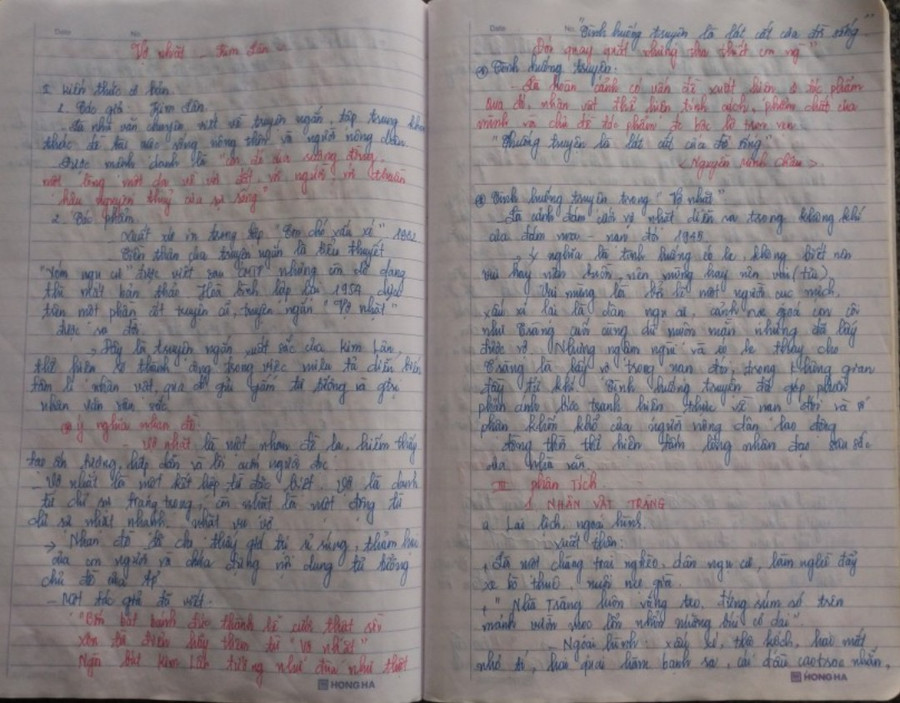 Date No.
Vợ nhặt - Kim Lân -
I. Kiến thức cơ bản
1. Tác giả: Kim Lân
- Là nhà văn chuyên viết về truyện ngắn, tập trung khai
thác đề tài nông thôn và người nông dân.
- Được mệnh danh là "
một lòng một dạ về với đất, với người với thuần
hậu nguyên thủy của sự sống"
2. Tác phẩm
- Xuất xứ in trong tập "Con chó xấu xí" 1962
- Tiền thân của truyện ngắn là tiểu thuyết
"Xóm ngụ cư" được viết sau CMT8 nhưng còn dở dang
thì mất bản thảo. Hòa bình lập lại 1954 dựa
trên một phần cốt truyện cũ, truyện ngắn "Vợ nhặt"
được ra đời.
-> Đây là truyện ngắn xuất sắc của Kim Lân,
thể hiện sự thành công trong việc miêu tả diễn biến
tâm lí nhân vật, qua đó gửi gắm tư tưởng và giá trị
nhân văn sâu sắc
* Ý nghĩa nhan đề:
- Vợ nhặt là một nhan đề lạ, hiếm thấy
tạo ấn tượng, hấp dẫn và lôi cuốn người đọc
- Vợ nhặt là một kết hợp từ đặc biệt. Vợ là danh
từ chỉ sự trang trọng, còn nhặt là một động từ
chỉ sự nhặt nhanh, nhặt vu vơ
-> Nhan đề đã cho thấy giá trị rẻ rúng, thảm hại
của con người và chứa đựng nội dung tư tưởng
chủ đề của tp'
- Một tác giả đã viết:
"Bốn bát bánh đúc thành lễ cưới thật sao
Xin từ điển hãy thêm từ "vợ nhặt"
Ngòi bút Kim Lân tưởng như đùa như thật
HONG HA
Date No. "Tình huống truyện là lát cắt của đời sống"
Đói quay quắt nhưng tha thiết con người"
* Tình huống truyện:
- Là hoàn cảnh có vấn đề xuất hiện ở tác phẩm
qua đó, nhân vật thể hiện tính cách, phẩm chất của
mình và chủ đề tác phẩm bộc lộ trọn vẹn
"Tình huống truyện là lát cắt của đời sống"
< Nguyễn Minh Châu >
* Tình huống truyện trong "Vợ nhặt"
- Là cảnh đám cưới vợ nhặt diễn ra trong không khí
của đám ma - nạn đói 1945
- Ý nghĩa là tình huống éo le không biết nên
vui hay nên buồn, nên mừng hay nên lo (tủi)
Vui mừng là bởi lẽ một người cục mịch,
xấu xí lại là dân ngụ cư, cảnh mẹ góa con côi
như Tràng cuối cùng dù muộn mằn nhưng đã lấy
được vợ. Nhưng ngậm ngùi và éo le thay cho
Tràng là lấy vợ trong nạn đói, trong không gian
. Tình huống truyện đã góp phần
phản ánh bức tranh hiện thực về nạn đói và số
phận khốn khổ của người nông dân lao động
đồng thời thể hiện tấm lòng nhân đạo sâu sắc
của nhà văn.
III. Phân tích
1. NHÂN VẬT TRÀNG
a. Lai lịch, ngoại hình
- Xuất thân:
+ Là một chàng trai nghèo, dân ngụ cư, làm nghề đẩy
xe bò thuê, nuôi mẹ già
+ " Nhà Tràng luôn vắng teo, đứng rúm ró trên
mảnh vườn mọc lổn nhổn những búi cỏ dại"
- Ngoại hình: xấu xí, thô kệch, hai mắt
nhỏ tí, hai quai hàm bạnh ra, cái đầu cạo trọc nhẵn,
HONG HA